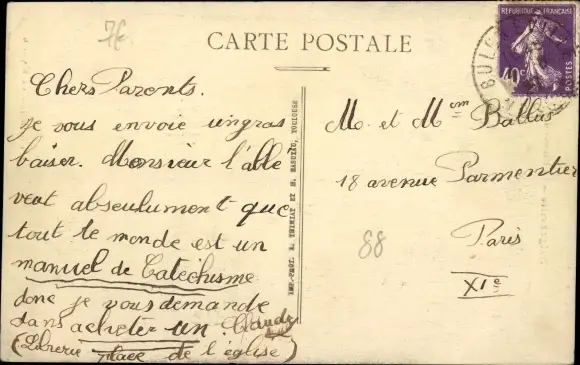 7f
CARTE POSTALE
REPUBLIQUE FRANÇAISE
40c
POSTES
Chers Parents.
Je vous envoie un gros
baiser. Monsieur l'abbé
veut abseulument que
tout le monde est un
manuel de Catéchisme
donc je vous demande
dans acheter un. Claude
(Librerie place de l'église)
IMP.-PHOT. L. THIRIAT ET H. BASUYAU, TOULOUSE
M. et Mem Ballus
18 avenue Parmentier
Paris
XIe
88